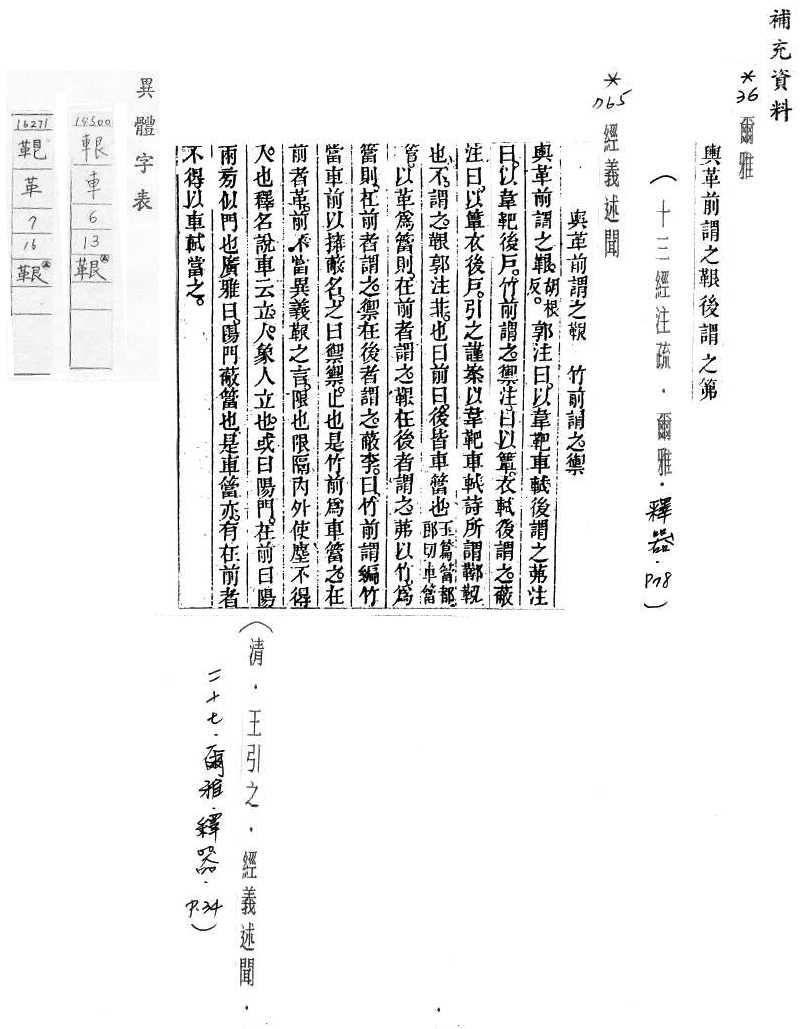 補充資料
*36 爾雅
輿革前謂之鞎後謂之第
(十三經注疏．爾雅．釋器．P78)
*1765 經義述聞
輿革前謂之鞎 竹前謂之禦
輿革前謂之鞎。胡根反。郭注曰。以韋靶車軾。後謂之茀。注
曰。以韋靶後戶。竹前謂之禦。注曰。以簟衣軾。後謂之蔽。
注曰。以簟衣後戶。引之謹案。以韋靶車軾。詩所謂鞹鞃
也。不謂之鞎。郭注非也。曰前曰後。皆車簹也。玉篇簹。都郎切。車簹
簹。以革為簹。則在前者謂之鞎。在後者謂之茀。以竹為
簹。則在前者謂之禦。在後者謂之蔽。李曰。竹前謂編竹
當車前以擁蔽。名之曰禦。禦。止也。是竹前為車簹之在
前者。革前不當異義。鞎之言限也。限隔內外。使塵不得
入也。釋名說車云。立人。象人立也。或曰陽門。在前曰陽。
兩旁似門也。廣雅曰。陽門。蔽簹也。是車簹亦有在前者。
不得以車軾當之。
(清．王引之．經義述聞．
二十七．爾雅．釋器．P.34)
異體字表
14500
車
6
13
鞎
16271
革
7
16
鞎